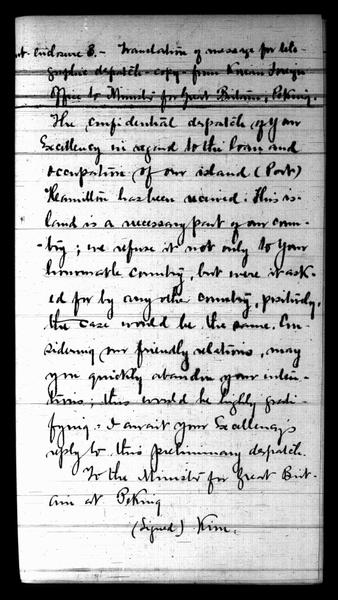 Enclosure 3. - Translation of message for tele-
graphic despatch - copy - from Korean Foreign
Office to Minister for Great Britain, Peking.
The confidential despatch of your
Excellency in regard to the loan and
occupation of our island (Port)
Hamilton has been received. This is-
land is a necessary part of our coun-
try; we refuse it not only to your
honorable country, but were it ask-
ed for by any other country, positively,
the case would be the same. Con-
sidering our friendly relations, may
you quickly abandon your inten-
tions; this would be highly grati-
fying. I await your Excellency's
reply to this preliminary despatch.
To the Minister for Great Brit-
ain at Peking
(Signed) Kim.